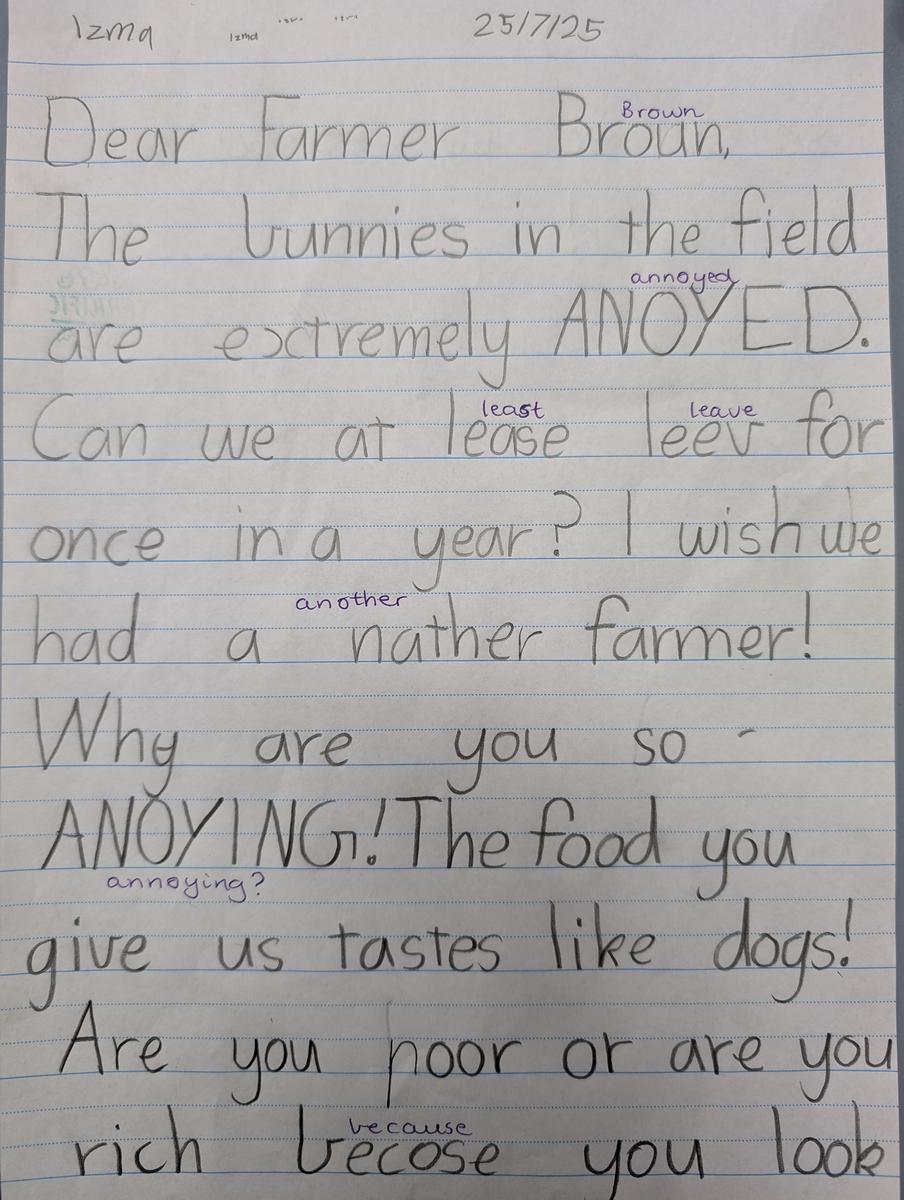 Izma Izma Izma Izma 25/7/25
Brown
Dear Farmer Broun,
The bunnies in the field
annoyed
are extremely ANOYED.
least leave
Can we at lease leev for
once in a year? I wish we
another
had a nather farmer!
Why are you so -
ANOYING! The food you
annoying?
give us tastes like dogs!
Are you poor or are you
because
rich becose you look